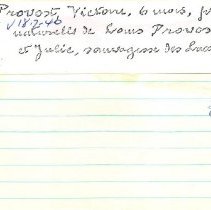 Provost, Victoire, 6 mois, f
√ 18-2-46
naturelle de Louis Provos
et Julie, sauvagesse des